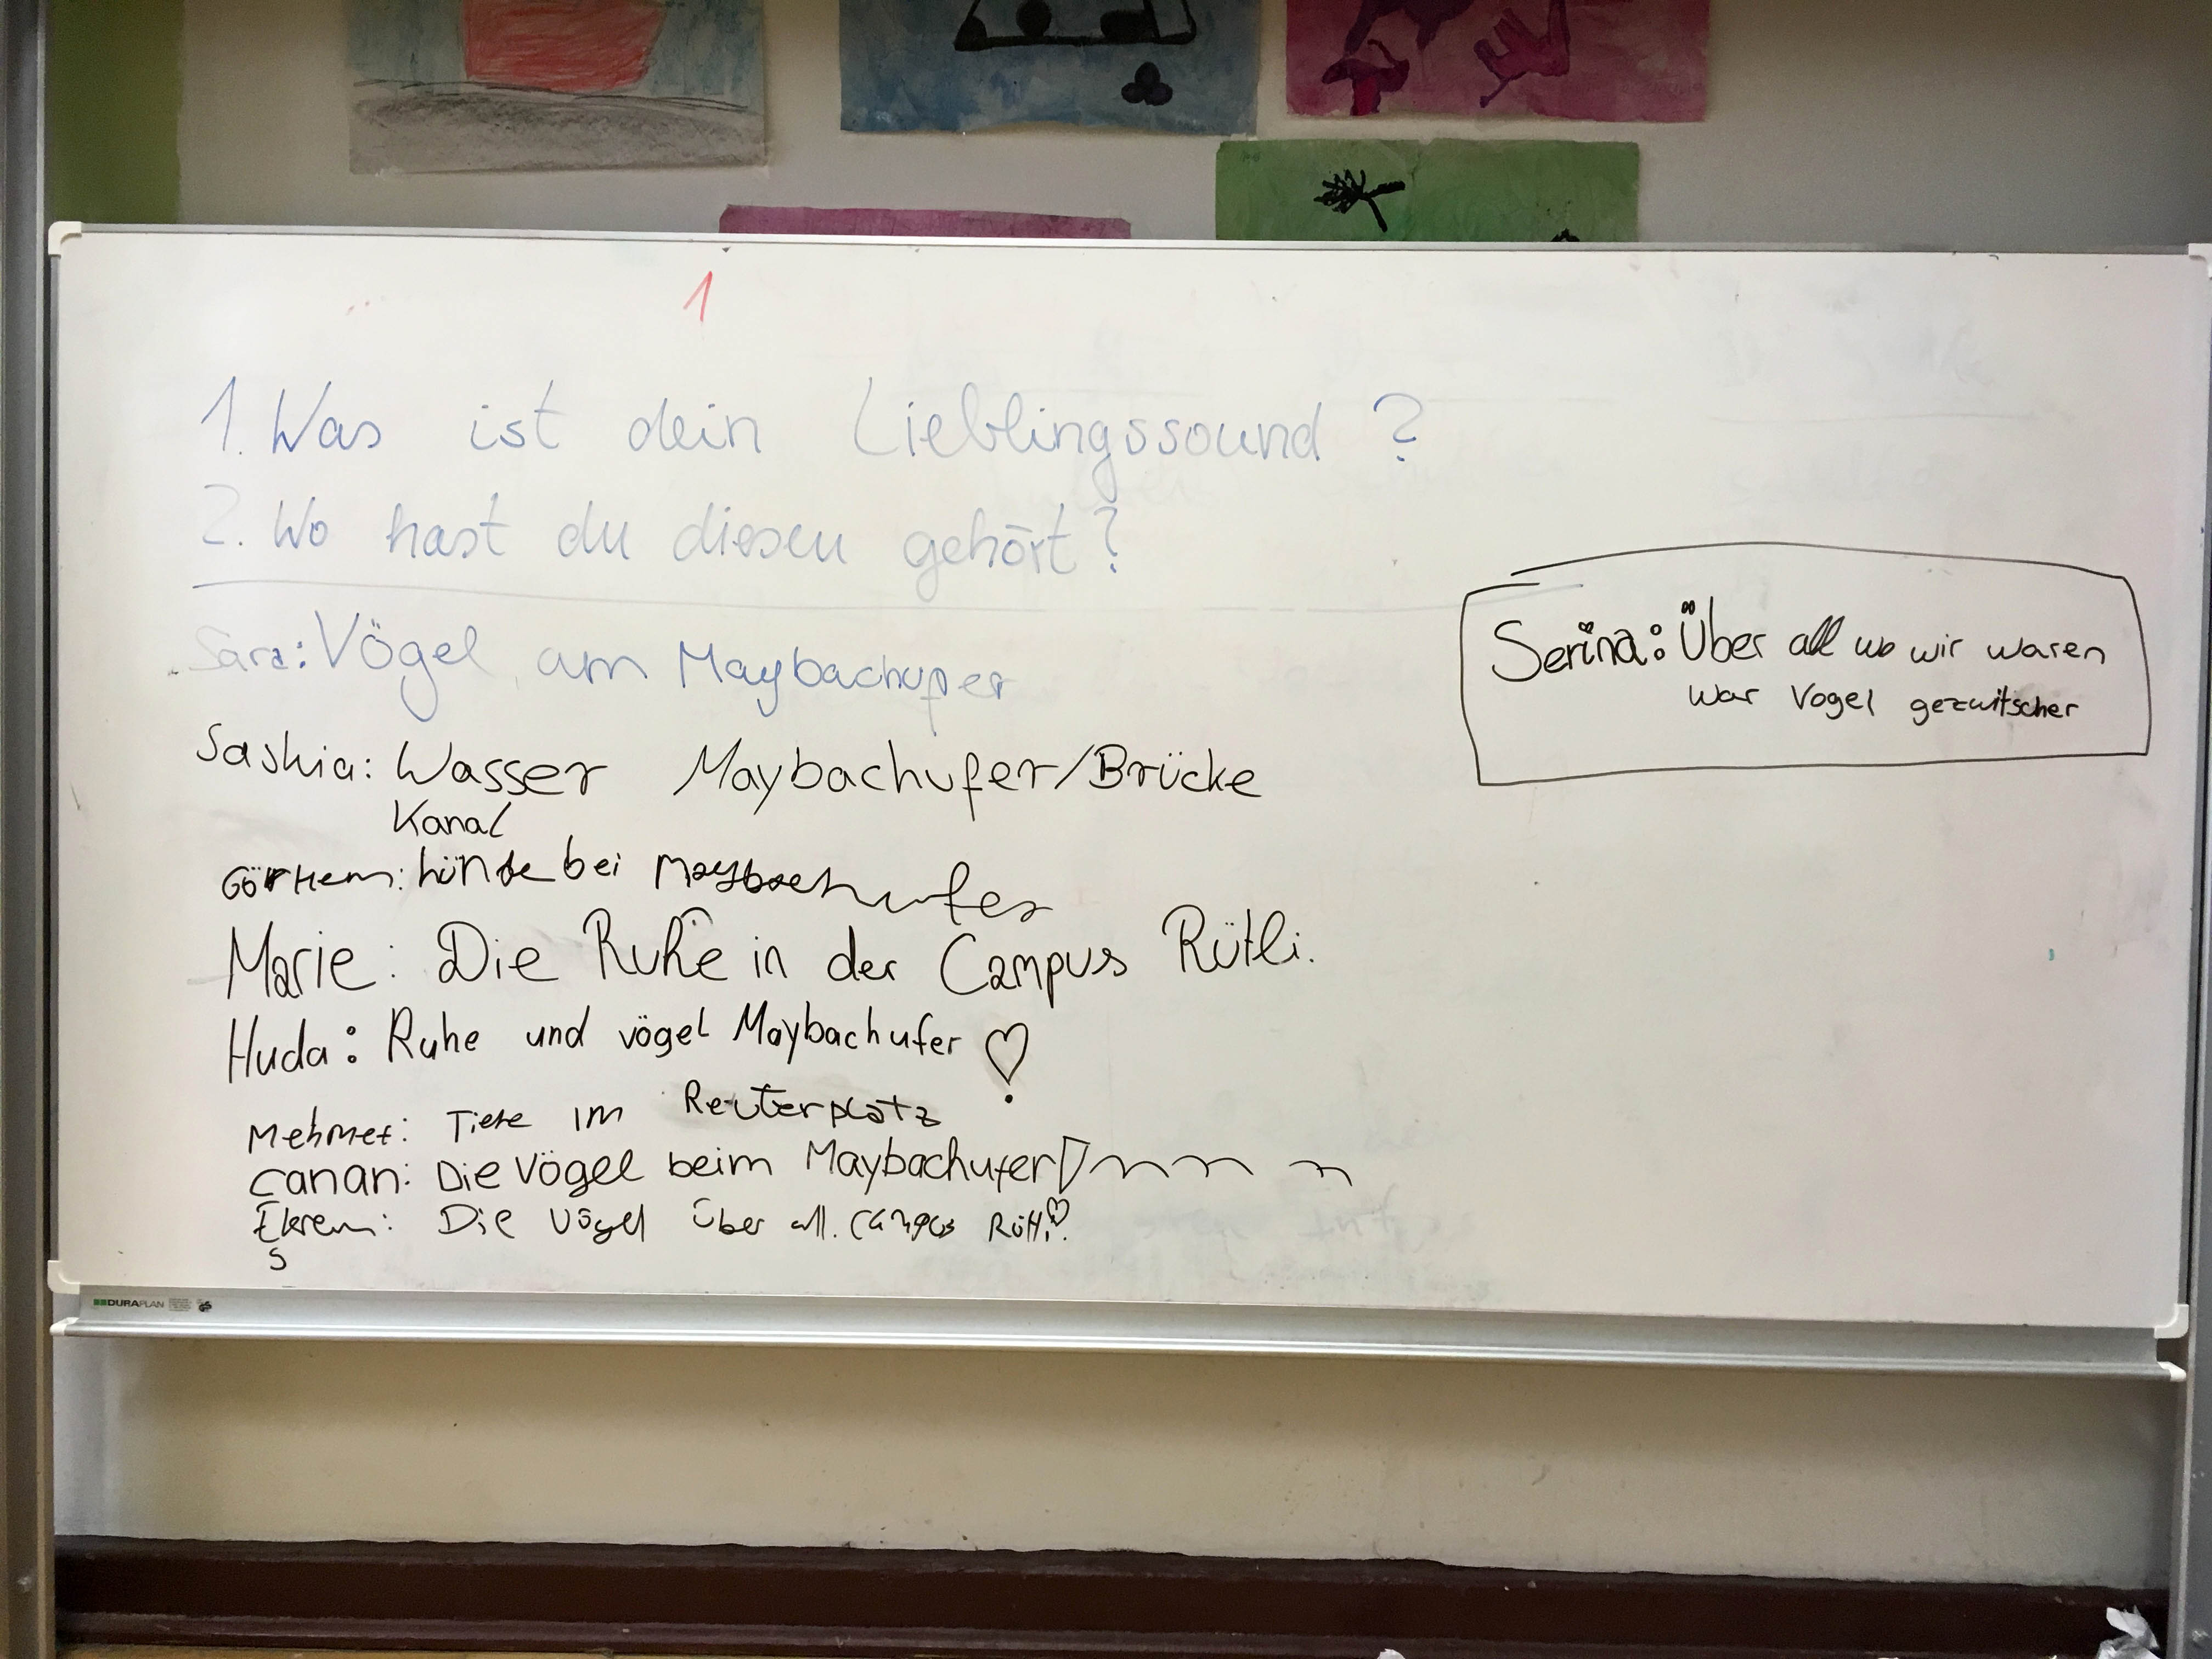 1
1. Was ist dein Lieblingssound ?
2. Wo hast du diesen gehört?
Sara: Vögel am Maybachufer
Saskia: Wasser Maybachufer/Brücke
Kanal
Görkem: hünde bei Maybachufer
Marie: Die Ruhe in der Campus Rütli.
Huda: Ruhe und vögel Maybachufer ♡
Mehmet: Tiere im Reuterplatz
Canan: Die Vögel beim Maybachufer
Ekrem: Die Vögel über all. Campus Rütli ♡
S
Serina: Über all wo wir waren
war Vogel gezwitscher
DURAPLAN